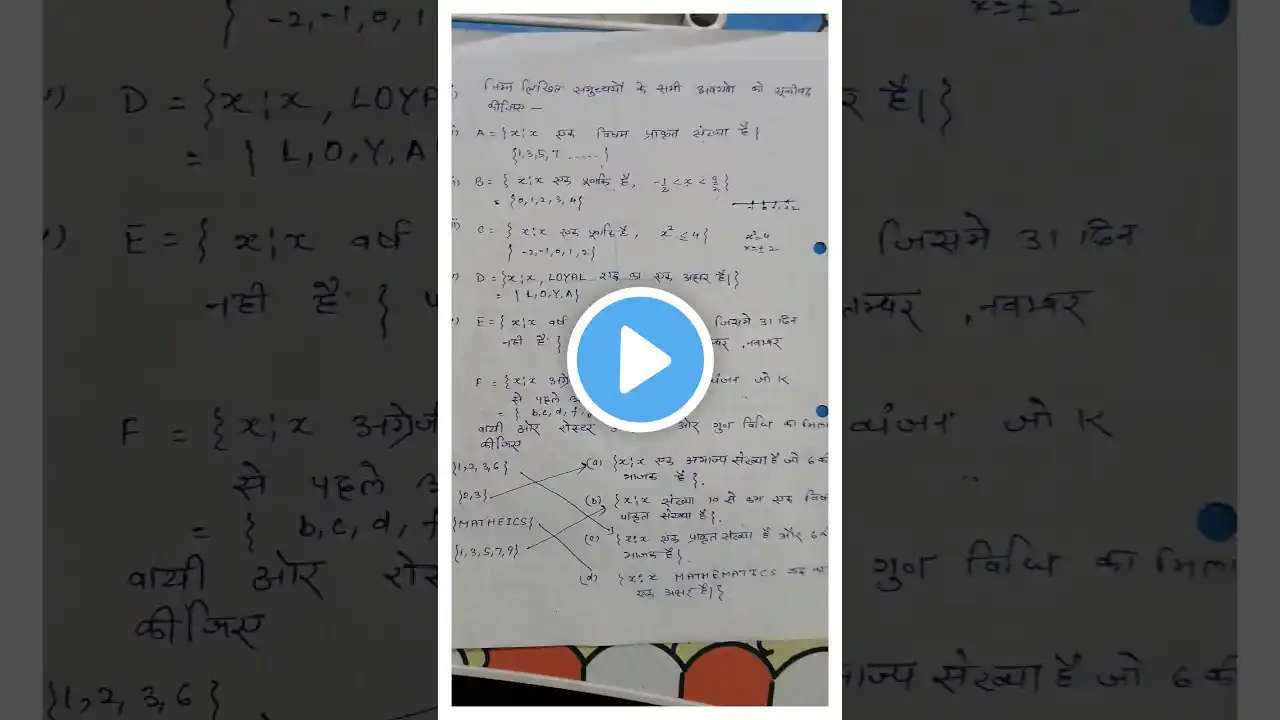 निम्न लिखित समुच्चयों के सभी अवयवो को सूचीबद्ध
कीजिए —
A = {x;x एक विषम प्राकृत संख्या है}
{1,3,5,7 .....}
B = { x;x एक पूर्णांक है, -1/2 < x < 9/2}
= {0,1,2,3,4}
C = { x;x एक पूर्णांक है, x² ≤ 4}
x²=4
x=±2
{ -2,-1,0,1,2}
D = {x;x, LOYAL शब्द का एक अक्षर है।}
= { L,O,Y,A}
E = { x;x वर्ष जिसमे 31 दिन
नही है } नवम्बर
F = {x;x अंग्रे व्यंजन जो K
से पहले
= { b,c,d,f
बायी ओर रोस्टर और गुण विधि का मिला
कीजिए
{1,2,3,6}
{2,3}
{MATHEICS}
{1,3,5,7,9}
(a) {x;x एक अभाज्य संख्या है जो 6 की
भाजक है}.
(b) {x;x संख्या 10 से कम एक विष
प्राकृत संख्या है}.
(c) {x;x एक प्राकृत संख्या है और 6 की
भाजक है}.
(d) {x;x MATHEMATICS शब्द का
एक अक्षर है।}